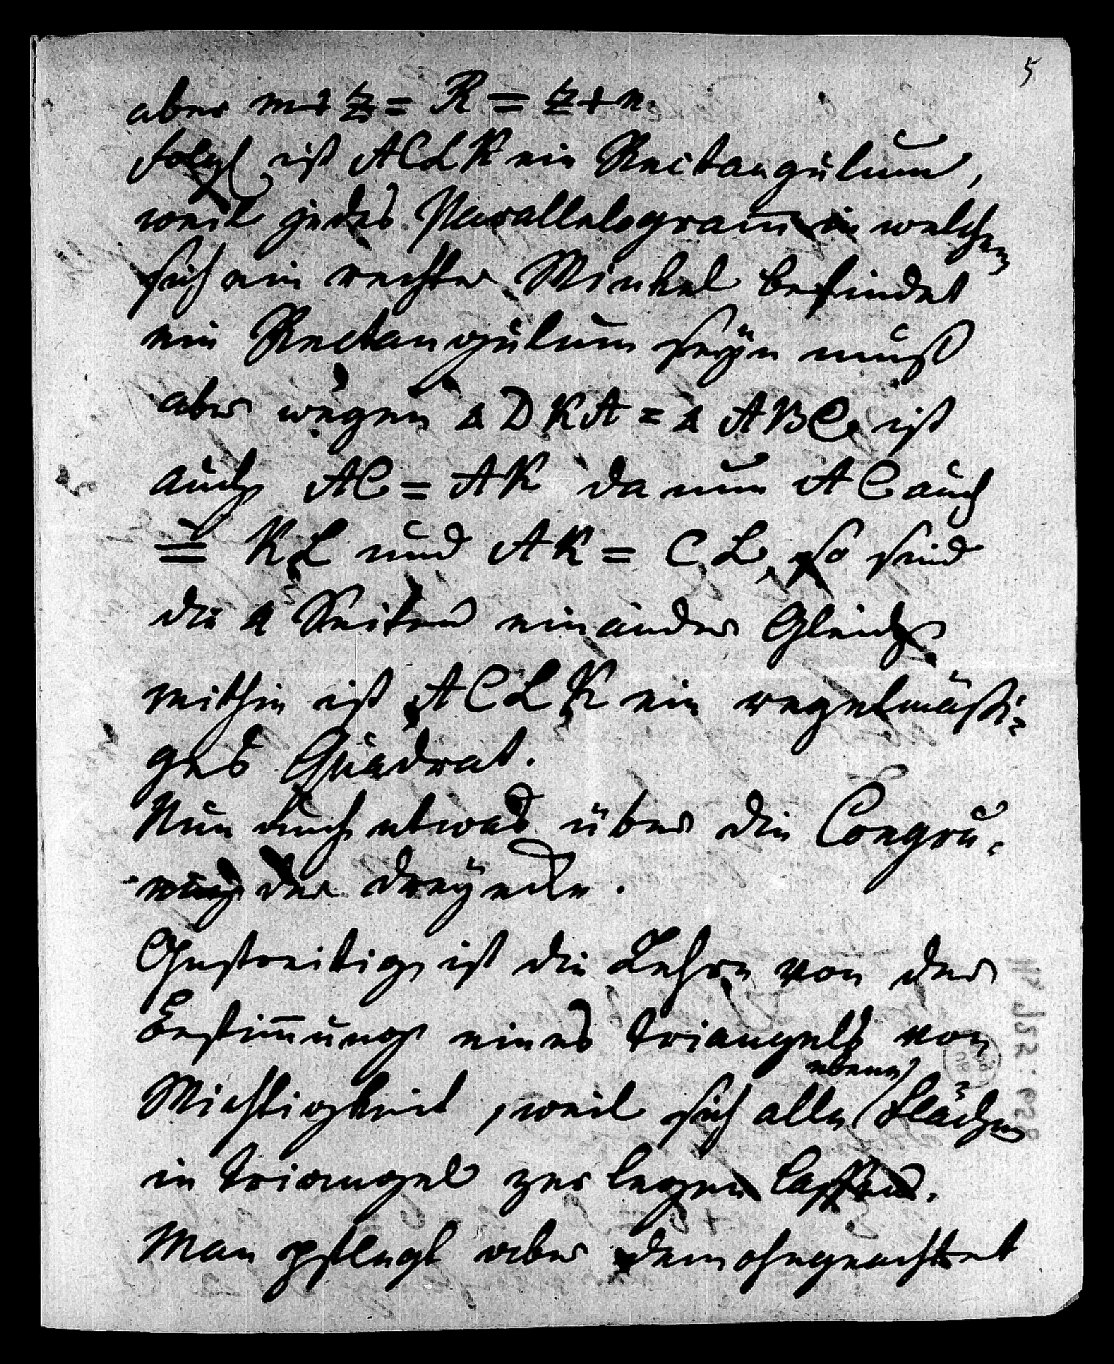 5
aber m + z = R = z + n.
folgl ist ACLK ein Rectangulum,
weil jedes Parallelogram̄ in welchem
sich ein rechter Winkel befindet
ein Rectangulum seÿn muß
aber wegen Δ DKA = Δ ABC ist
auch AC = AK da nun AC auch
= KL und AK = CL, so sind
die 4 Seiten einander Gleich
mithin ist ACLK ein regelmäßi-
ges Quadrat.
Nun auch etwas über die Congru-
der Dreÿecke.
Unstreitig ist die Lehre von der
Bestim̄ung eines Triangels von
Wichtigkeit, weil sich alle ebenen Flächen
in Triangel zerlegen lassen.
Man pflegt aber demohngeachtet